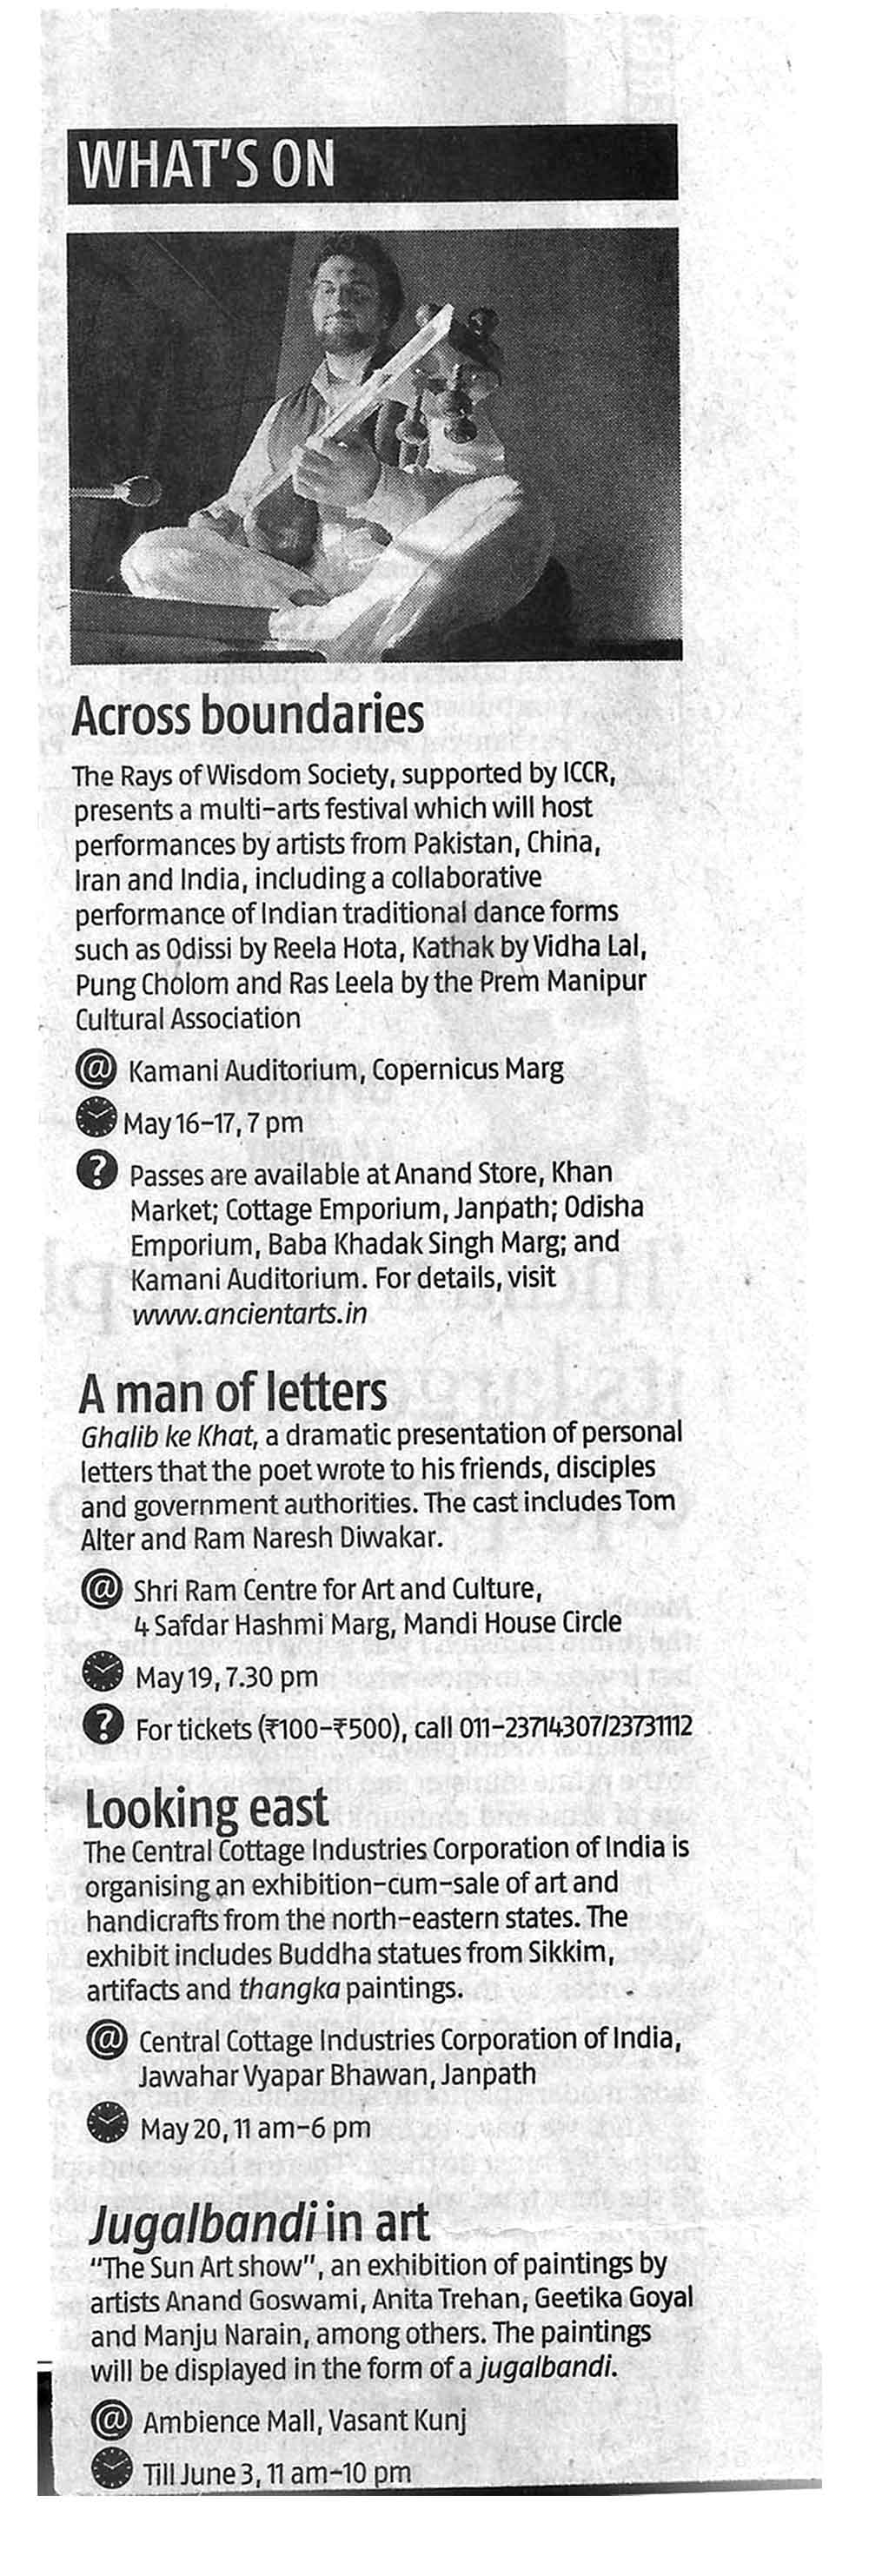 WHAT'S ON
Across boundaries
The Rays of Wisdom Society, supported by ICCR,
presents a multi-arts festival which will host
performances by artists from Pakistan, China,
Iran and India, including a collaborative
performance of Indian traditional dance forms
such as Odissi by Reela Hota, Kathak by Vidha Lal,
Pung Cholom and Ras Leela by the Prem Manipur
Cultural Association
@ Kamani Auditorium, Copernicus Marg
May 16-17, 7 pm
? Passes are available at Anand Store, Khan
Market; Cottage Emporium, Janpath; Odisha
Emporium, Baba Khadak Singh Marg; and
Kamani Auditorium. For details, visit
www.ancientarts.in
A man of letters
Ghalib ke Khat, a dramatic presentation of personal
letters that the poet wrote to his friends, disciples
and government authorities. The cast includes Tom
Alter and Ram Naresh Diwakar.
@ Shri Ram Centre for Art and Culture,
4 Safdar Hashmi Marg, Mandi House Circle
May 19, 7.30 pm
? For tickets (₹100-₹500), call 011-23714307/23731112
Looking east
The Central Cottage Industries Corporation of India is
organising an exhibition-cum-sale of art and
handicrafts from the north-eastern states. The
exhibit includes Buddha statues from Sikkim,
artifacts and thangka paintings.
@ Central Cottage Industries Corporation of India,
Jawahar Vyapar Bhawan, Janpath
May 20, 11 am-6 pm
Jugalbandi in art
"The Sun Art show", an exhibition of paintings by
artists Anand Goswami, Anita Trehan, Geetika Goyal
and Manju Narain, among others. The paintings
will be displayed in the form of a jugalbandi.
@ Ambience Mall, Vasant Kunj
Till June 3, 11 am-10 pm